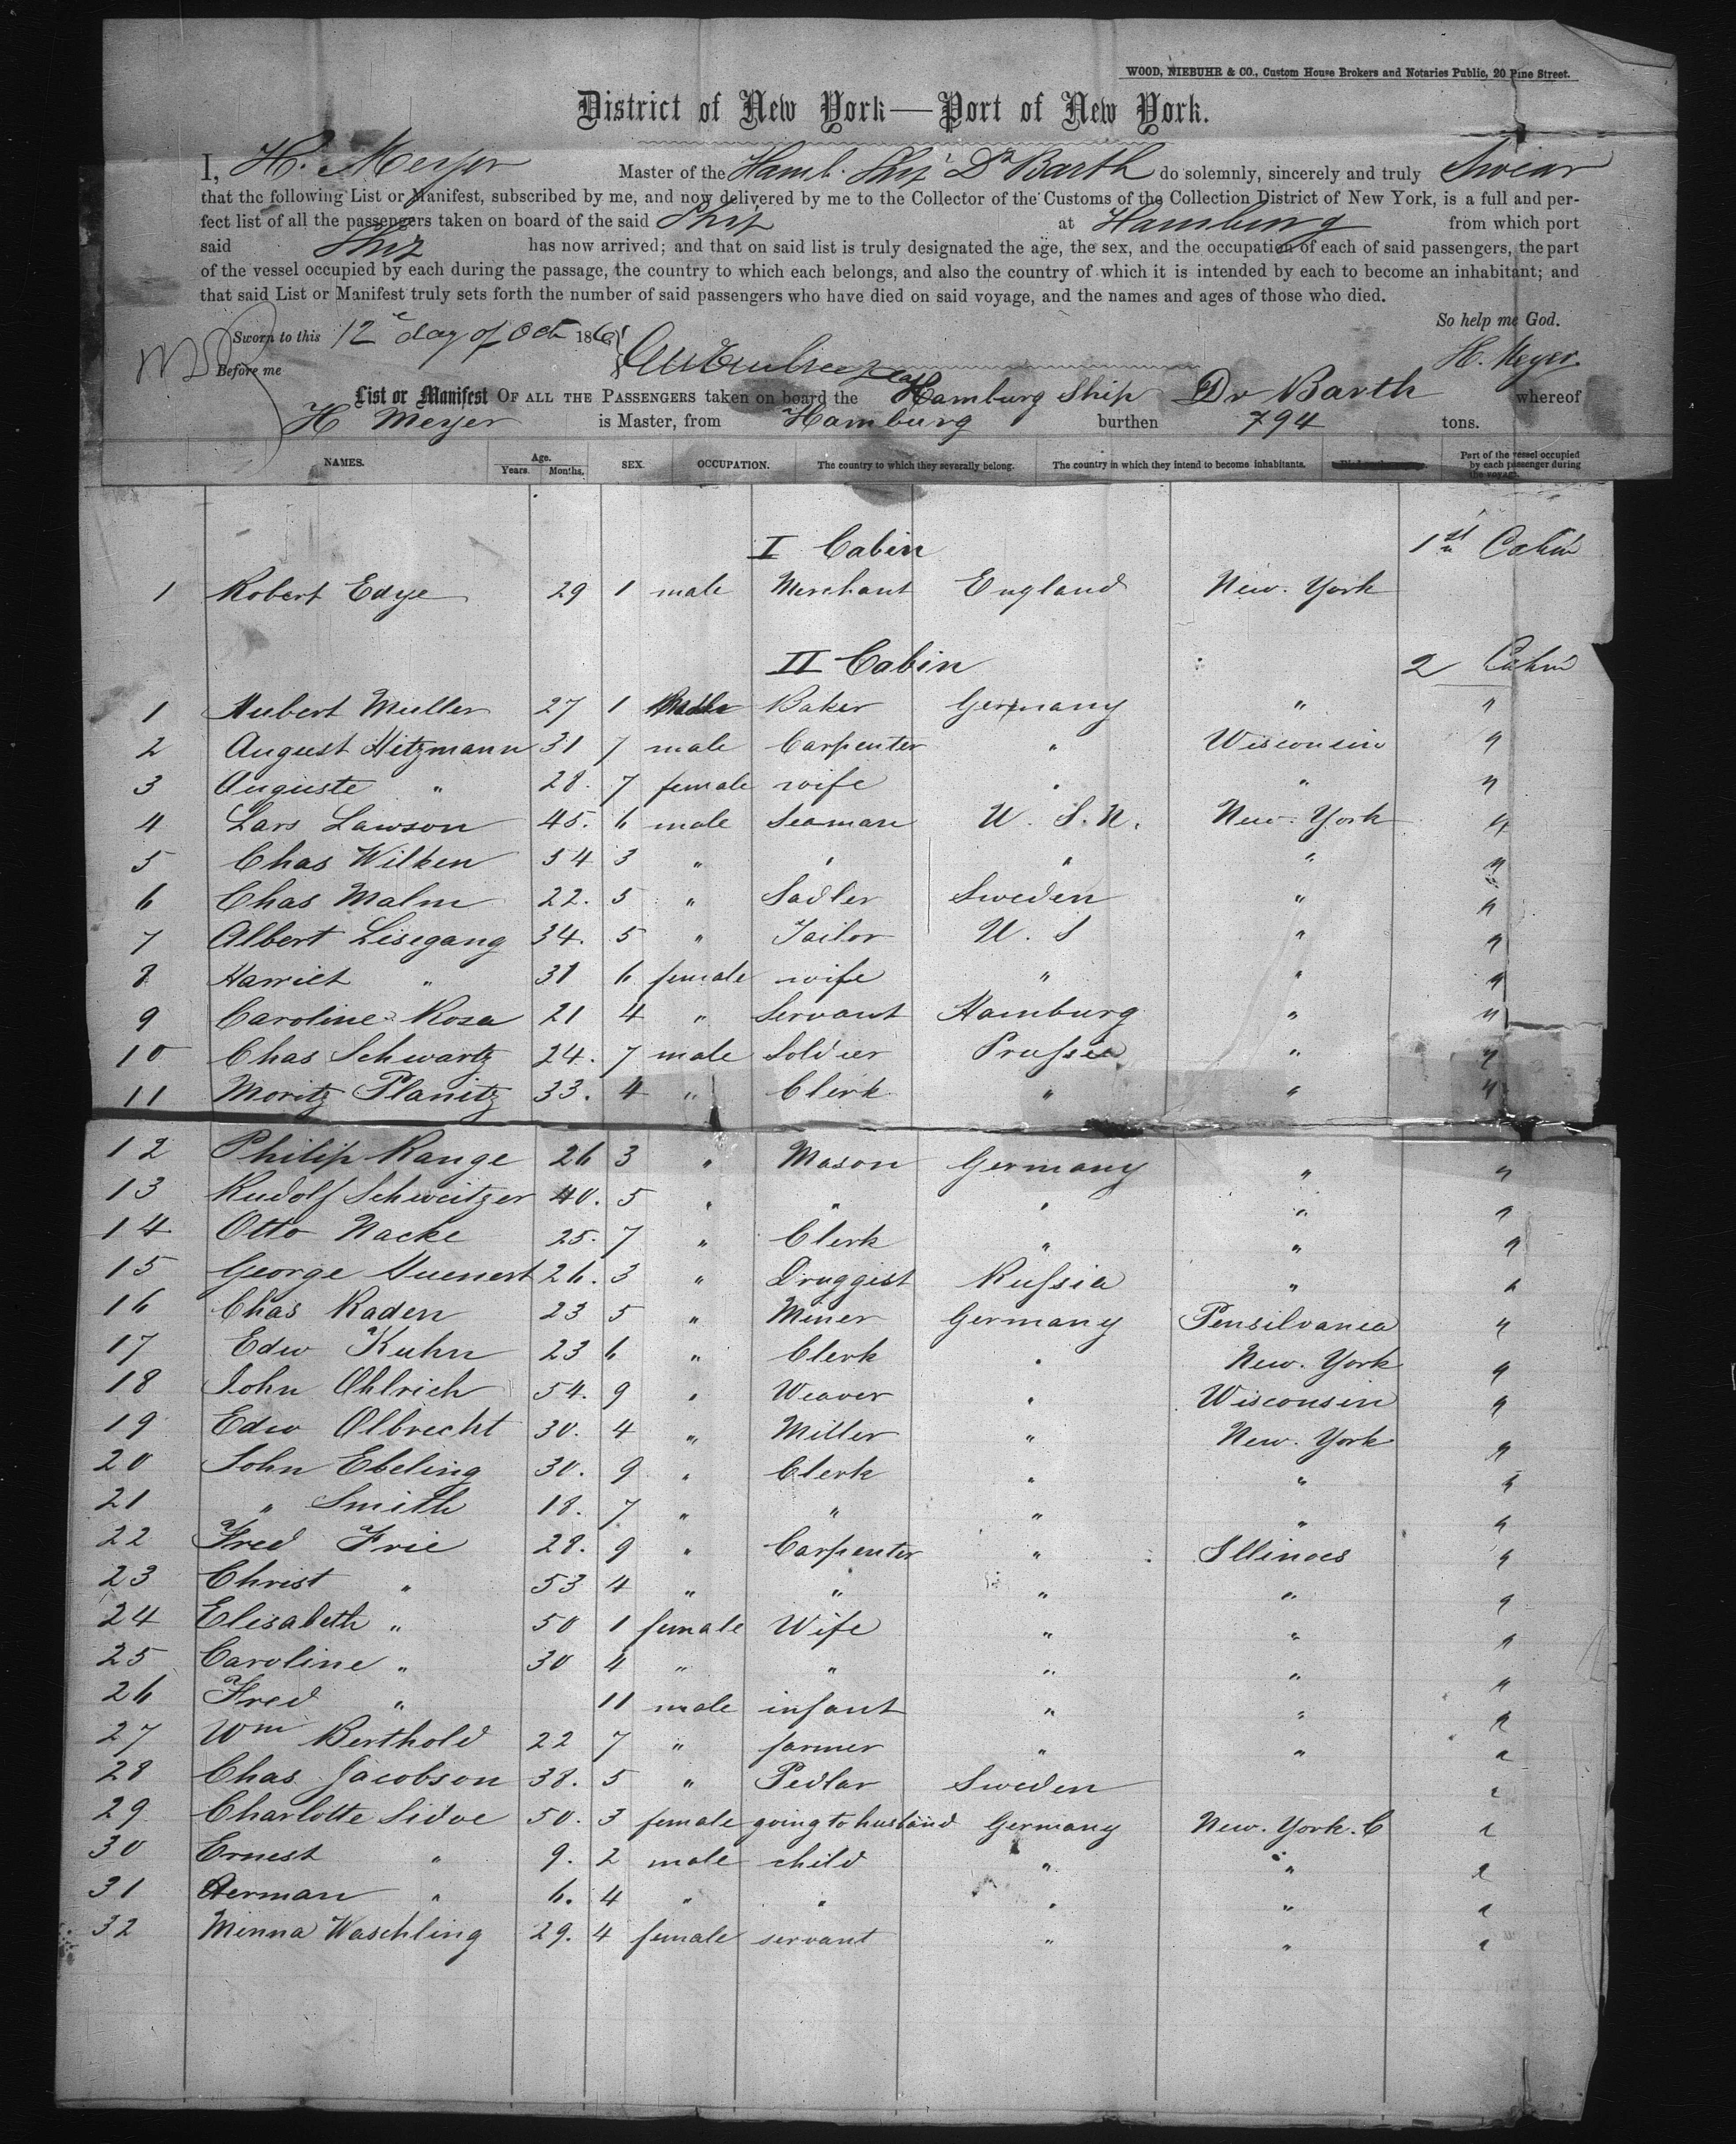 WOOD, NIEBUHR & CO., Custom House Brokers and Notaries Public, 20 Pine Street.
District of New York—Port of New York.
I, H. Meyer Master of the Hamb. Ship Dr Barth do solemnly, sincerely and truly Swear
that the following List or Manifest, subscribed by me, and now delivered by me to the Collector of the Customs of the Collection District of New York, is a full and per-
fect list of all the passengers taken on board of the said Ship at Hamburg from which port
said Ship has now arrived; and that on said list is truly designated the age, the sex, and the occupation of each of said passengers, the part
of the vessel occupied by each during the passage, the country to which each belongs, and also the country of which it is intended by each to become an inhabitant; and
that said List or Manifest truly sets forth the number of said passengers who have died on said voyage, and the names and ages of those who died.
So help me God.
Sworn to this 12 day of Oct 186
Before me H. Meyer
List or Manifest OF ALL THE PASSENGERS taken on board the Hamburg Ship Dr Barth whereof
H Meyer is Master, from Hamburg burthen 794 tons.
NAMES. Age. Years. Months. SEX. OCCUPATION. The country to which they severally belong. The country in which they intend to become inhabitants. Part of the vessel occupied by each passenger during the voyage.
I Cabin 1st Cabin
1 Robert Edye 29 1 male Merchant England New. York
II Cabin 2 Cabin
1 Hubert Muller 27 1 Baker Germany " "
2 August Hitzmann 31 7 male Carpenter " Wisconsin "
3 Auguste " 28. 7 female wife " " "
4 Lars Lawson 45. 6 male Seaman U. S. N. New. York "
5 Chas Wilken 54 3 " " " " "
6 Chas Malm 22. 5 " Sadler Sweden " "
7 Albert Lisegang 34. 5 " Tailor U. S " "
8 Harriet " 31 6 female wife " " "
9 Caroline Rosa 21 4 " Servant Hamburg " "
10 Chas Schwartz 24. 7 male Soldier Prussia " "
11 Moritz Planitz 33. 4 " Clerk " " "
12 Philip Range 26 3 " Mason Germany " "
13 Rudolf Schweitzer 40. 5 " " " " "
14 Otto Nacke 25. 7 " Clerk " " "
15 George Huenert 26. 3 " Druggist Russia " "
16 Chas Raden 23 5 " Miner Germany Pensilvania "
17 Edw Kuhn 23 6 " Clerk " New. York "
18 John Ohlrich 54. 9 " Weaver " Wisconsin "
19 Edw Olbrecht 30. 4 " Miller " New. York "
20 John Ebeling 30. 9 " Clerk " " "
21 " Smith 18. 7 " " " " "
22 Fred Frie 28. 9 " Carpenter " Illinoes "
23 Christ " 53 4 " " " " "
24 Elisabeth " 50 1 female Wife " " "
25 Caroline " 30 4 " " " " "
26 Fred " 11 male infant " " "
27 Wm Berthold 22 7 " farmer " " "
28 Chas Jacobson 38. 5 " Pedlar Sweden "
29 Charlotte Sidve 50. 3 female going to husband Germany New. York. C "
30 Ernest " 9. 2 male child " " "
31 Herman " 6. 4 " " " " "
32 Minna Waschling 29. 4 female servant " " "